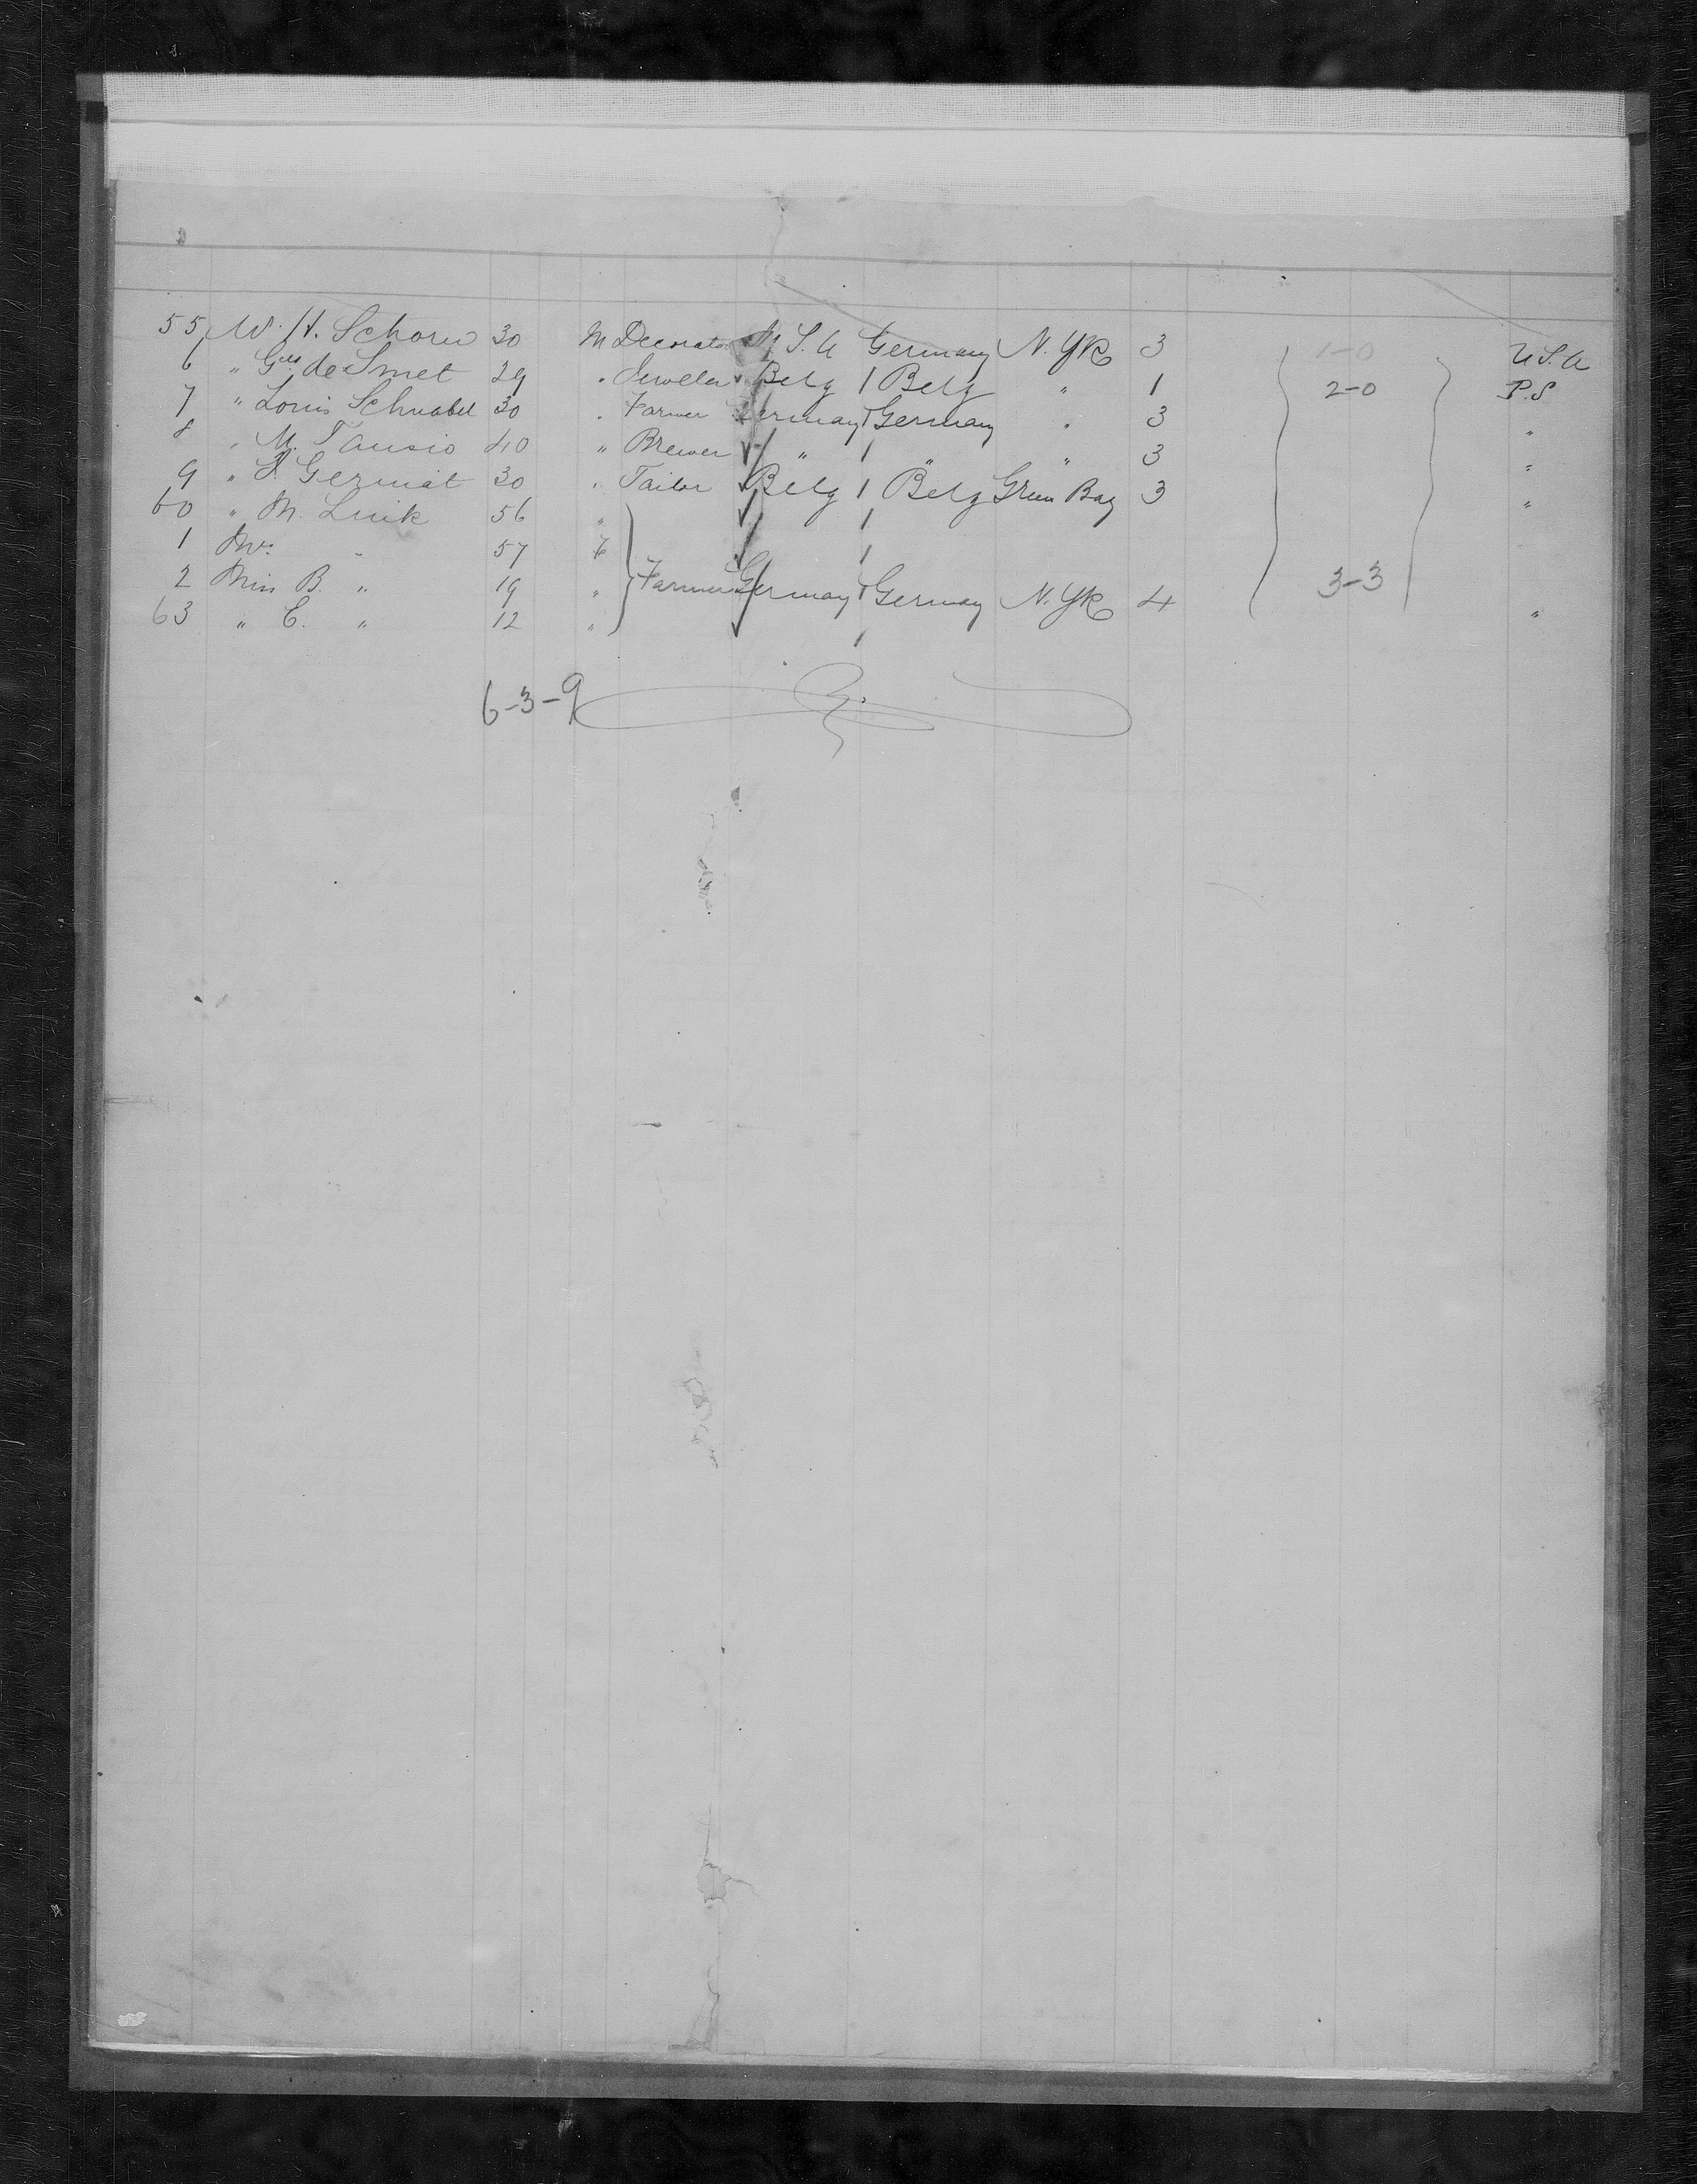 55 Mr. H. Schorn 30 M Decorator U.S.A Germany N. Yk 3 1-0 U.S.A
6 " Gus de Smet 29 " Jeweller Belg / Belg " 1 2-0 P.S
7 " Louis Schnabel 30 " Farmer Germany / Germany " 3 "
8 " M. Tansio 40 " Brewer " / " " 3 "
9 " Germiat 30 " Tailor Belg / Belg Green Bay 3 "
60 " M. Luik 56 " /
1 Mrs " 57 f /
2 Miss B. " 19 " Farmer Germany / Germany N. Yk 4 3-3
63 " C. " 12 " / "
6-3-9